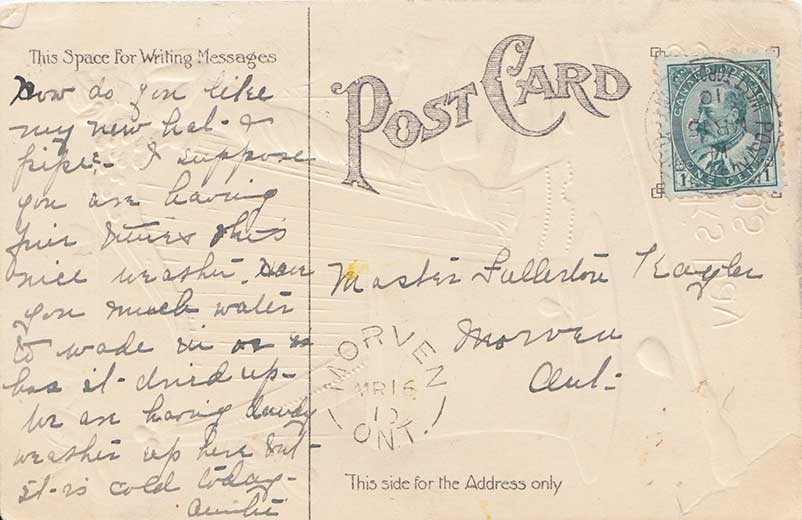 This Space For Writing Messages
How do you like
my new hat &
pipe - I suppose
you are having
fine times this
nice weather. Have
you much water
to wade in or
has it dried up -
We are having dandy
weather up here but
it is cold today -
Auntie
POST CARD
CANADA POSTAGE
ONE CENT
1 1
Master Fullerton
Morven
Ont.
MORVEN
MR 16
10
ONT.
This side for the Address only